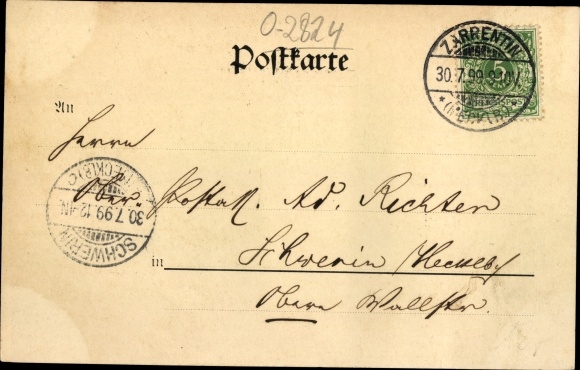 O-2824
Postkarte
ZARRENTIN
30.7.99.
(MECKLB)
5
An
Herrn
Ober-Postass. Ad. Richter
SCHWERIN
30.7.99.12-1N
(MECKLB)
in Schwerin Mecklb
Obere Wallstr.